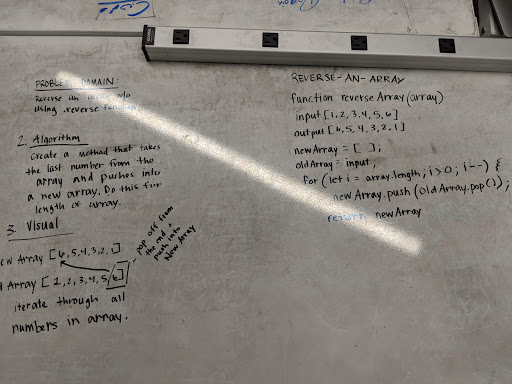 PROBLEM DOMAIN:
Reverse an
using .reverse function
2. Algorithm
Create a method that takes
the last number from the
array and pushes into
a new array. Do this for
length of array.
3. Visual
New Array [6,5,4,3,2,1]
Array [1,2,3,4,5,6]
pop off from
the end &
push into
New Array
iterate through all
numbers in array.
REVERSE-AN-ARRAY
function reverseArray(array)
input [1,2,3,4,5,6]
output [6,5,4,3,2,1]
newArray = [ ];
oldArray = input;
for (let i = array.length; i > 0; i--) {
newArray.push(oldArray.pop());
return newArray